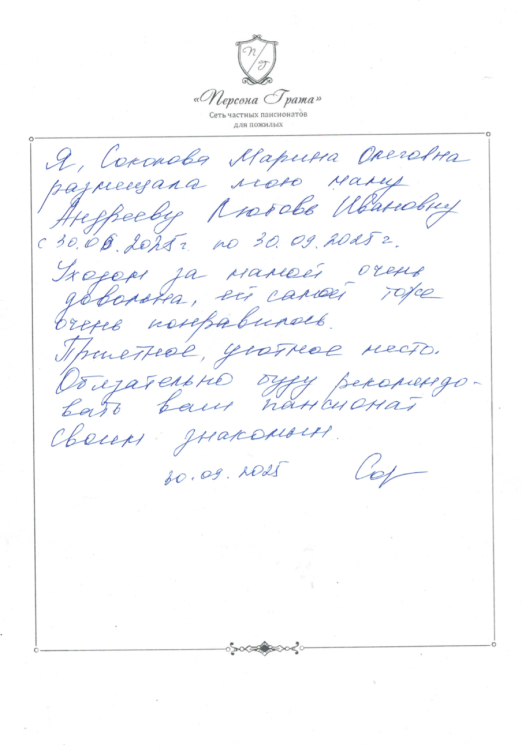 П/Г
«Персона Грата»
Сеть частных пансионатов
для пожилых
Я, Соколова Марина Олеговна
размещала мою маму
Андрееву Любовь Ивановну
с 30.06.2025г. по 30.09.2025г.
Уходом за мамой очень
довольна, ей самой тоже
очень понравилось.
Приятное, уютное место.
Обязательно буду рекомендо-
вать ваш пансионат
своим знакомым.
30.09.2025 Сор